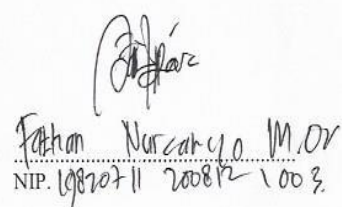 Fathan Nurcahyo M.Or
NIP. 19820711 200812 1 003.